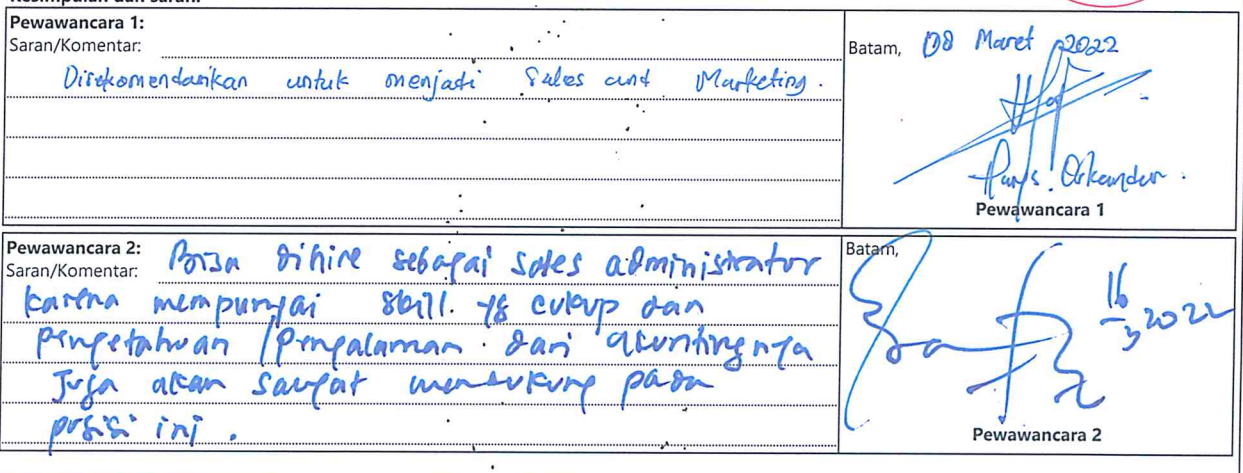 Kesimpulan dan saran:
Pewawancara 1:
Saran/Komentar:
Direkomendasikan untuk menjadi Sales and Marketing.
Batam, 08 Maret 2022
Pewawancara 1
Pewawancara 2:
Saran/Komentar: Bisa dihire sebagai sales administrator
karena mempunyai skill. yg cukup dan
pengetahuan / pengalaman dari acuntingnya
Juga akan sangat mendukung pada
posisi ini.
Batam,
16/3 2022
Pewawancara 2